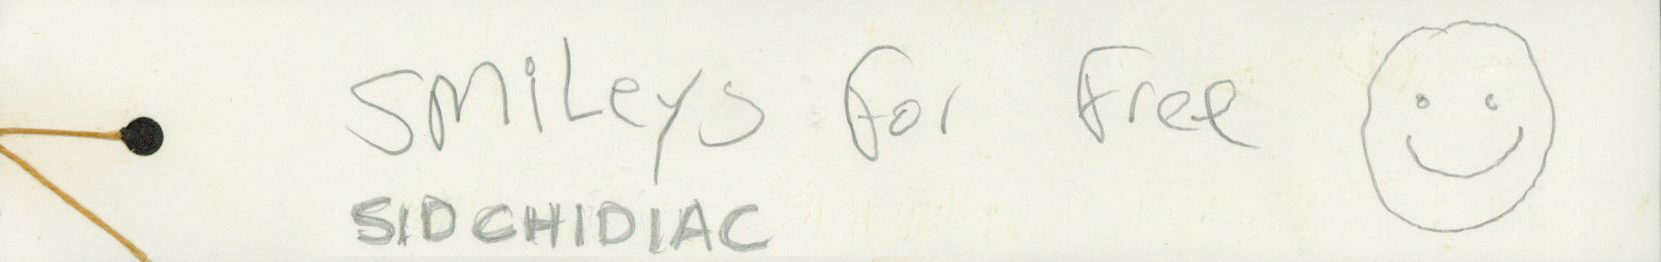 SMiLeys for Free
SIDCHIDIAC